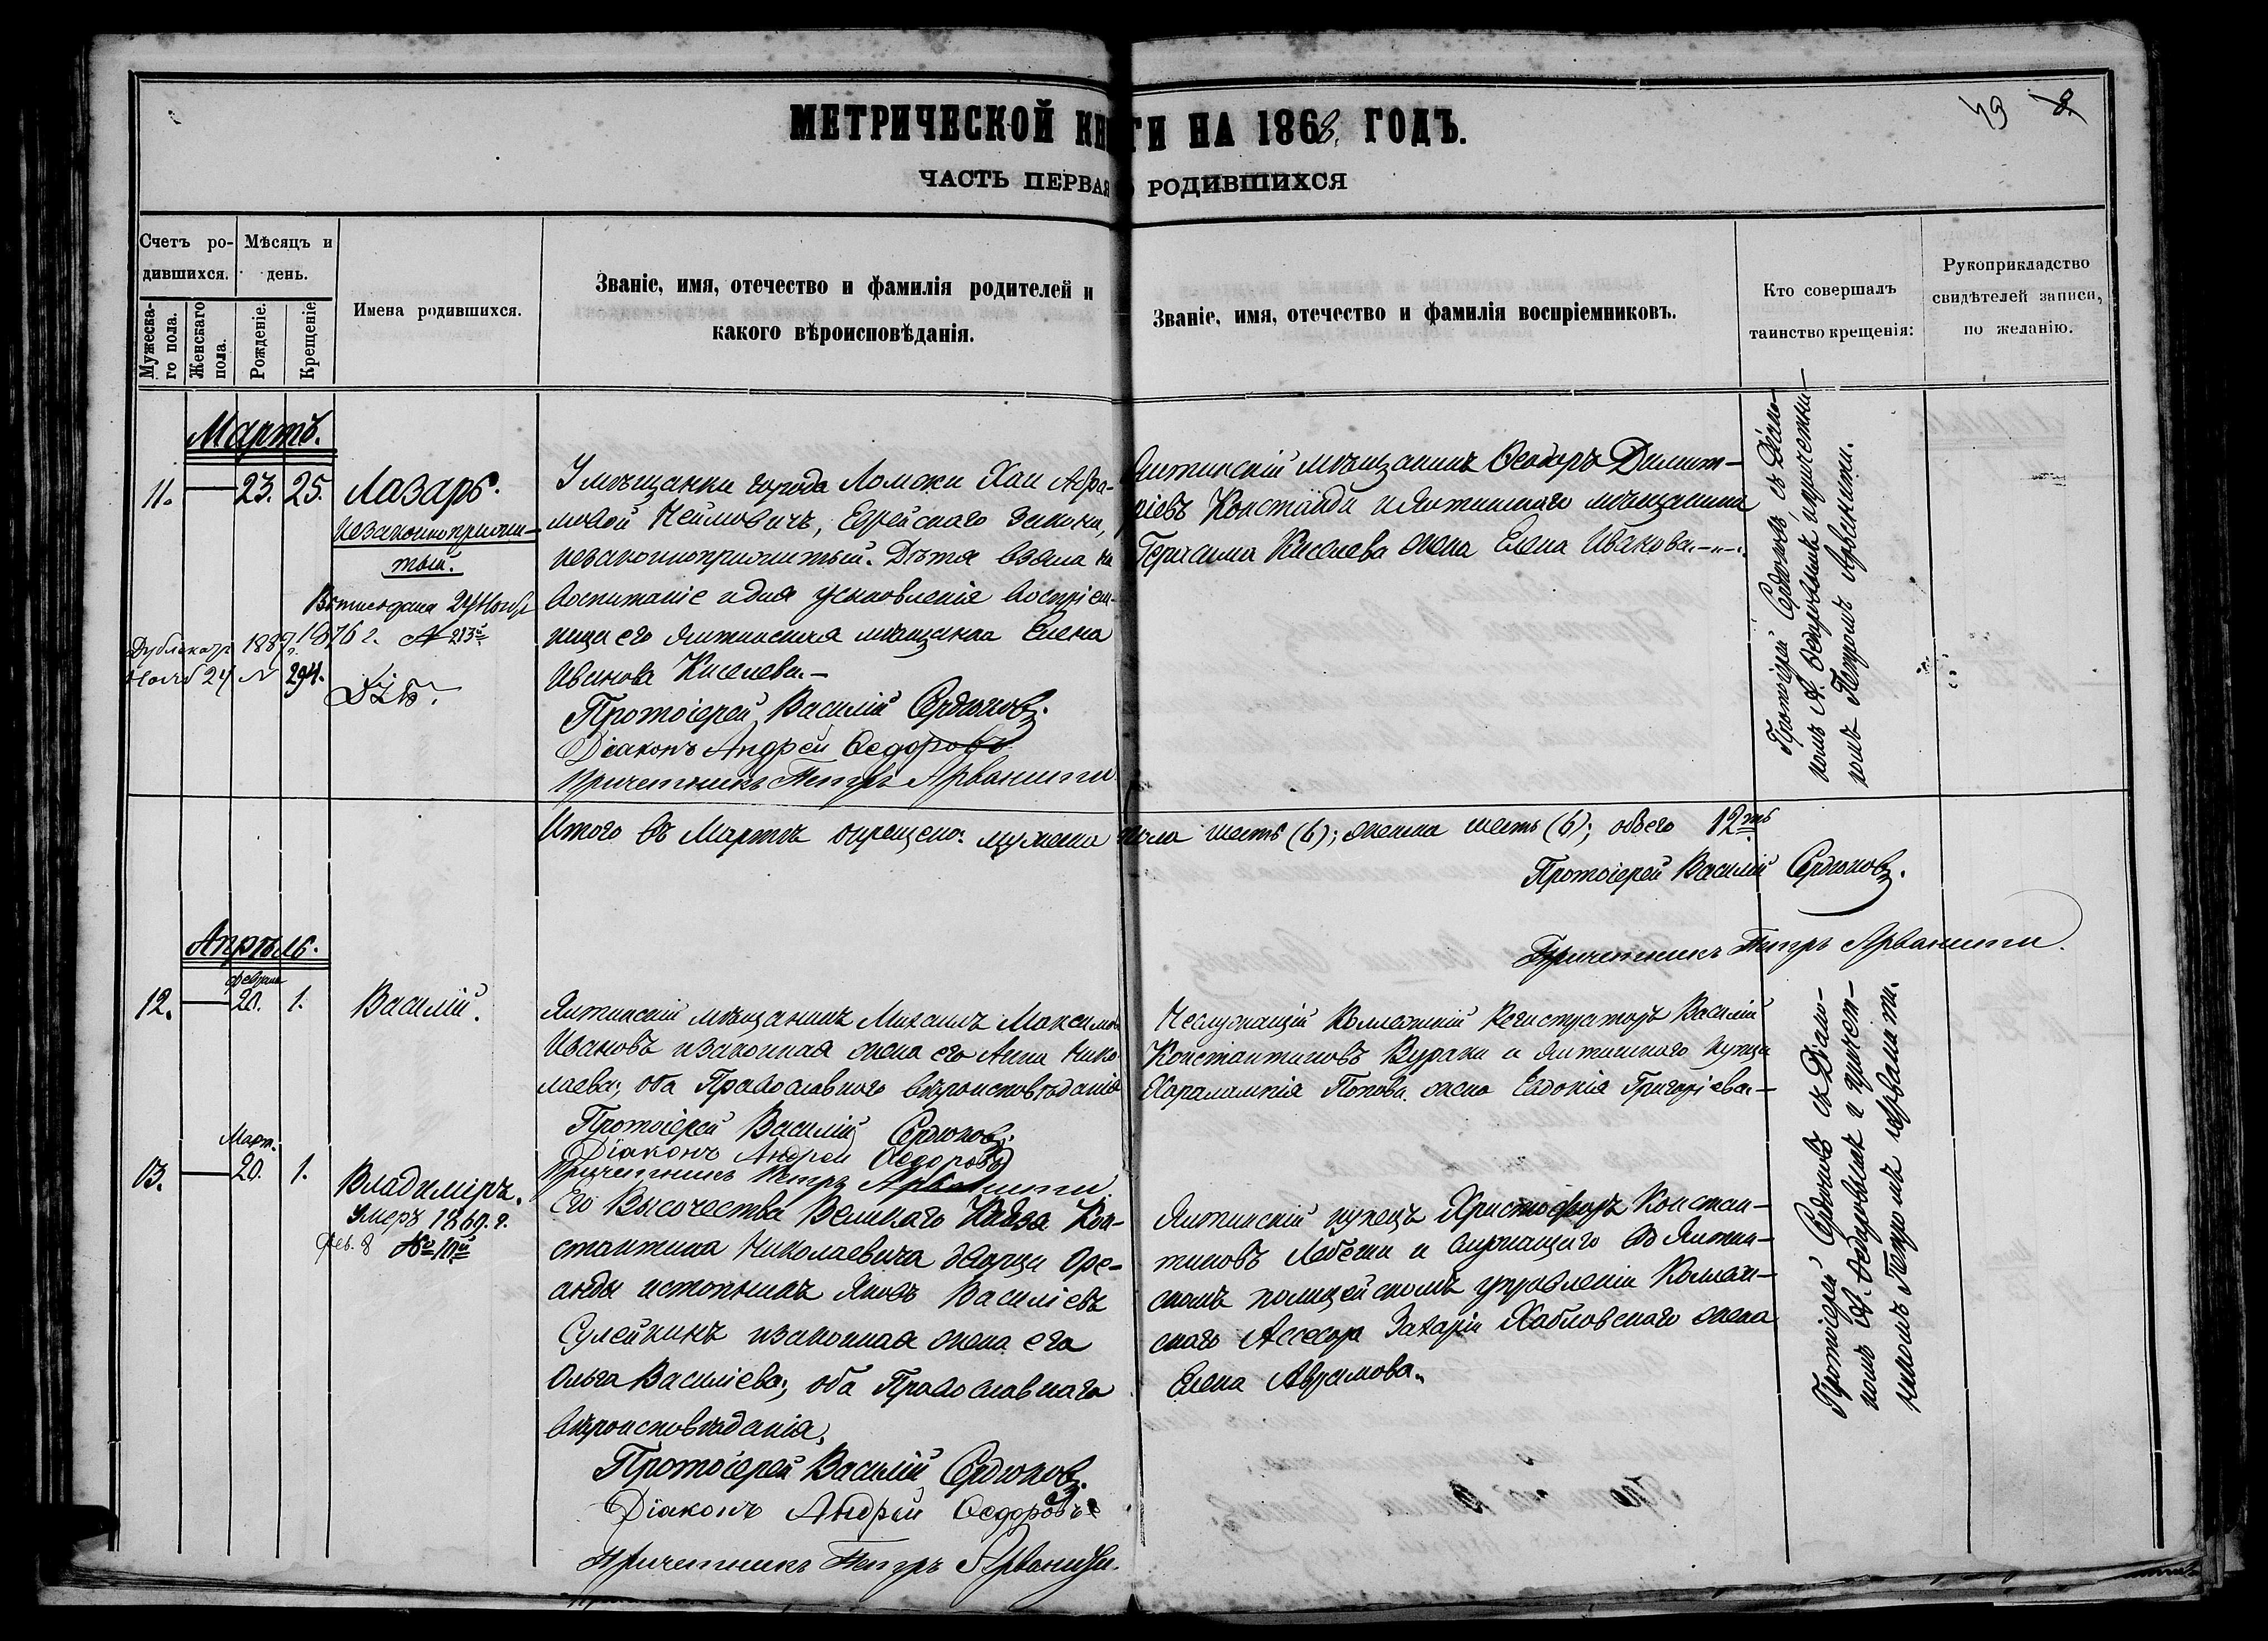 МЕТРИЧЕСКОЙ КНИГИ НА 1868. ГОДЪ.
49
ЧАСТЬ ПЕРВАЯ О РОДИВШИХСЯ
Счетъ родившихся.
Мужескаго пола.
Женскаго пола.
Мѣсяцъ и день.
Рожденіе.
Крещеніе
Имена родившихся.
Званіе, имя, отечество и фамилія родителей и
какого вѣроисповѣданія.
Званіе, имя, отечество и фамилія воспріемниковъ.
Кто совершалъ
таинство крещенія:
Рукоприкладство
свидѣтелей записи,
по желанію.
Мартъ.
11. — 23. 25. Лазарь.
незаконноприжи-
тый.
1876 г. №
1887 г.
24 № 294.
У мѣщанки города Ломжи Хаи Абра-
мовой Неймовичъ, Еврейскаго закона,
незаконноприжитый. Дѣтя взяла на
воспитаніе и для усыновленія воспріем-
ница его Ялтинская мѣщанка Елена
Иванова Киселева.—
Протоіерей Василій Сердюковъ.
Діаконъ Андрей Ѳедоровъ
Причетникъ Петръ Арванити
Ялтинскій мѣщанинъ Ѳеодоръ Димит-
ріевъ Констанди и Ялтинскаго мѣщанина
Герасима Киселева жена Елена Иванова.
Протоіерей Сердюковъ съ Діако-
номъ А. Ѳедоровымъ и причетни-
комъ Петромъ Арванити.
Итого въ Мартѣ окрещено: мужеска пола шесть (6); женска шесть (6); обоего 12ть
Протоіерей Василій Сердюковъ.
Причетникъ Петръ Арванити.
Апрѣль.
Февраля
12. — 20. 1. Василій.
Ялтинскій мѣщанинъ Михаилъ Максимовъ
Ивановъ и законная жена его Анна Нико-
лаева, оба Православнаго вѣроисповѣданія
Протоіерей Василій Сердюковъ.
Діаконъ Андрей Ѳедоровъ
Причетникъ Петръ Арванити
Неслужащій Коллежскій Регистраторъ Василій
Константиновъ Кураки и Ялтинскаго купца
Харалампія Попова жена Евдокія Григоріева.—
Март.
13. — 20. 1. Владиміръ.
Умеръ 1869. г.
Фев. 8 №
Его Высочества Великаго Князя Кон-
стантина Николаевича дворца Оре-
анды истопникъ Яковъ Василіевъ
Сулейкинъ и законная жена его
Ольга Василіева, оба Православнаго
вѣроисповѣданія.
Протоіерей Василій Сердюковъ.
Діаконъ Андрей Ѳедоровъ
Причетникъ Петръ Арванити.
Ялтинскій купецъ Христофоръ Констан-
тиновъ и служащаго въ Ялтин-
скомъ полицейскомъ управленіи Коллеж-
скаго Ассесора Захарія Хабловскаго жена
Елена Аврамова.
Протоіерей Сердюковъ съ Діако-
номъ А. Ѳедоровымъ и причет-
никомъ Петромъ Арванити.